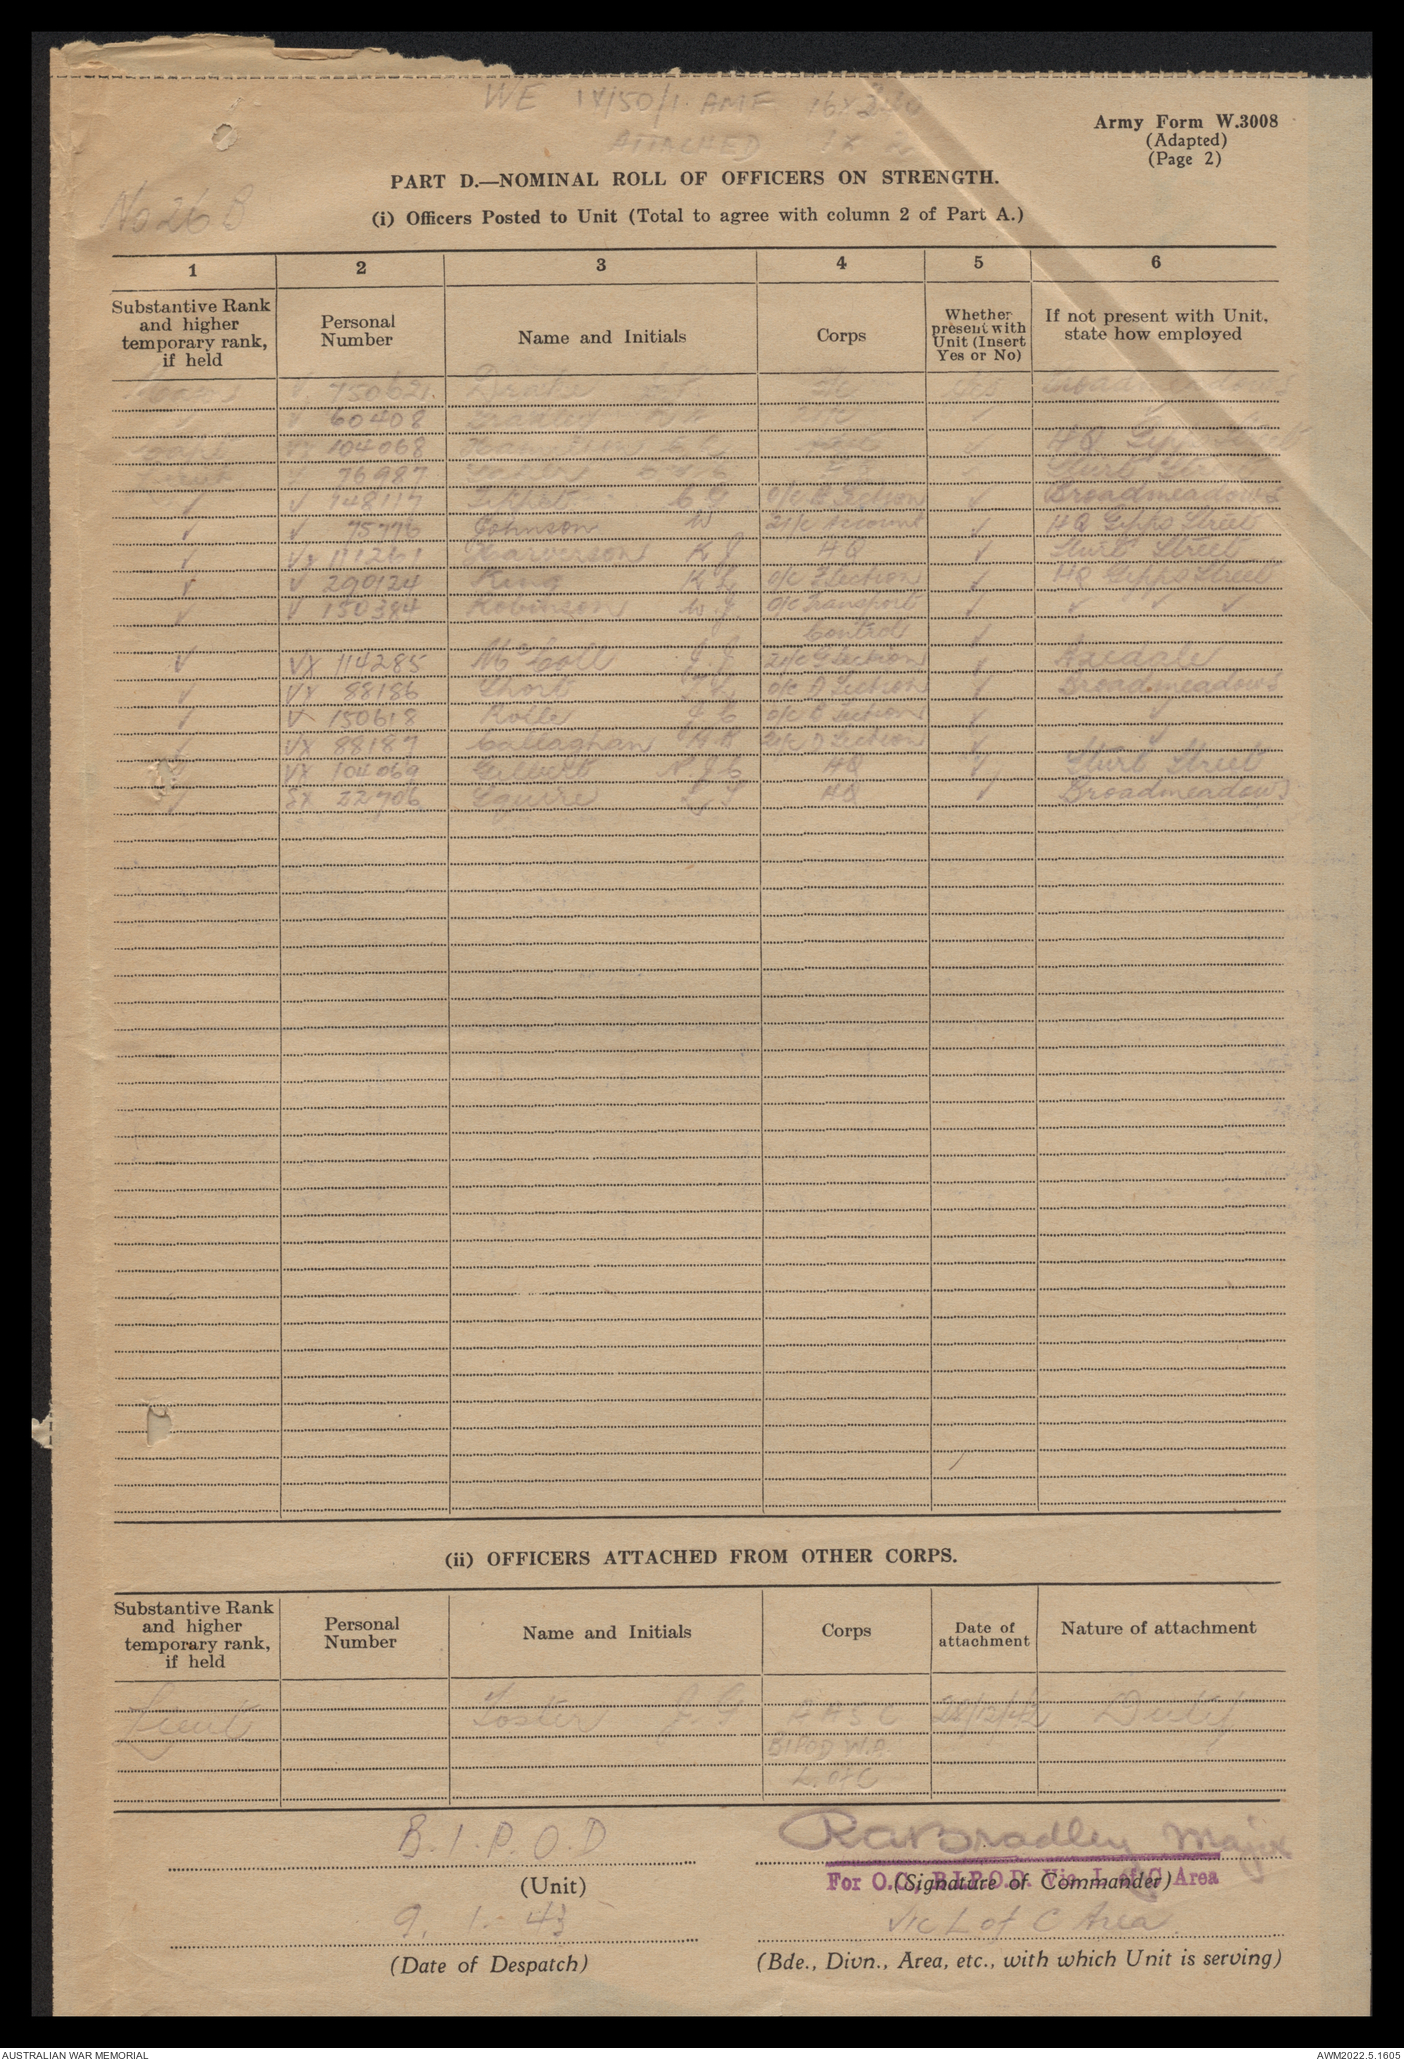 WE 1X/50/1. AMF 16 X 2
ATTACHED 1X
Army Form W.3008
(Adapted)
(Page 2)
PART D.—NOMINAL ROLL OF OFFICERS ON STRENGTH.
No 26 B
(i) Officers Posted to Unit (Total to agree with column 2 of Part A.)
1 2 3 4 5 6
Substantive Rank and higher temporary rank, if held
Personal Number
Name and Initials
Corps
Whether present with Unit (Insert Yes or No)
If not present with Unit, state how employed
V 750621 Drake Yes Broadmeadows
✓ V 60408 Bradley
Capt VX 104068 HQ Gipps Street
Lieut V 76987 Sturt Street
✓ V 148117 C G o/c E Section ✓ Broadmeadows
✓ V 75776 Johnson W 2i/c Account ✓ HQ Gipps Street
✓ VX 111261 Harverson K J HQ ✓ Sturt Street
✓ V 290124 King K L o/c F Section ✓ HQ Gipps Street
✓ V 150384 Robinson W. J. o/c Transport ✓ ✓ ✓ ✓
Control ✓
✓ VX 114285 McColl J. J. 2i/c G Section ✓ Axedale
✓ VX 88186 Short o/c A Section ✓ Broadmeadows
✓ V 150618 Rolle J. C o/c C Section ✓ ✓
✓ VX 88187 Callaghan H H 2i/c D Section ✓ ✓
✓ VX 104069 Gilbert N J C HQ ✓ Sturt Street
✓ SX 22706 Squire L S HQ ✓ Broadmeadows
(ii) OFFICERS ATTACHED FROM OTHER CORPS.
Substantive Rank and higher temporary rank, if held
Personal Number
Name and Initials
Corps
Date of attachment
Nature of attachment
Lieut Foster J. G A A S C 28/12/42 Duty
BIPOD W.D.
L. of C
B.I.P.O.D
(Unit)
RA Bradley Major
For O.C., B.I.P.O.D. Vic. L. of C. Area
(Signature of Commander)
9. 1. 43
(Date of Despatch)
Vic L of C Area.
(Bde., Divn., Area, etc., with which Unit is serving)
AUSTRALIAN WAR MEMORIAL
AWM2022.5.1605